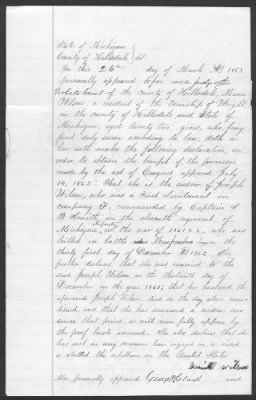 State of Michigan
County of Hillsdale SS.
On this 26th day of March AD 1863
personally appeared before me judge of the
Probate Court of the county of Hillsdale,
Wilson, a resident of the township of Wright
in the county of Hillsdale and State of
Michigan, aged twenty two years, who being
first duly sworn according to law, doth on
her oath make the following declaration, in
order to obtain the benefit of the provision
made by the act of Congress approved July
14, 1862: That she is the widow of Joseph
Wilson, who was a First Lieutenant in
company F. commanded by Captain
B Smith, in the eleventh regiment of
Michigan Infantry in the war of 1861 & 2, who was
killed in battle near Murfreesboro Tenn on the
thirty first day of December AD 1862. She
further declares that she was married to the
said Joseph Wilson on the thirteenth day of
December in the year 1860; that her husband the
aforesaid Joseph Wilson died on the day above
and that she has remained a widow ever
since that period, as will more fully appear by
the proof hereto annexed. She also declares that she
has not in any manner been engaged in, or aided
or abetted the rebellion in the United States
Wilson
Also personally appeared George and